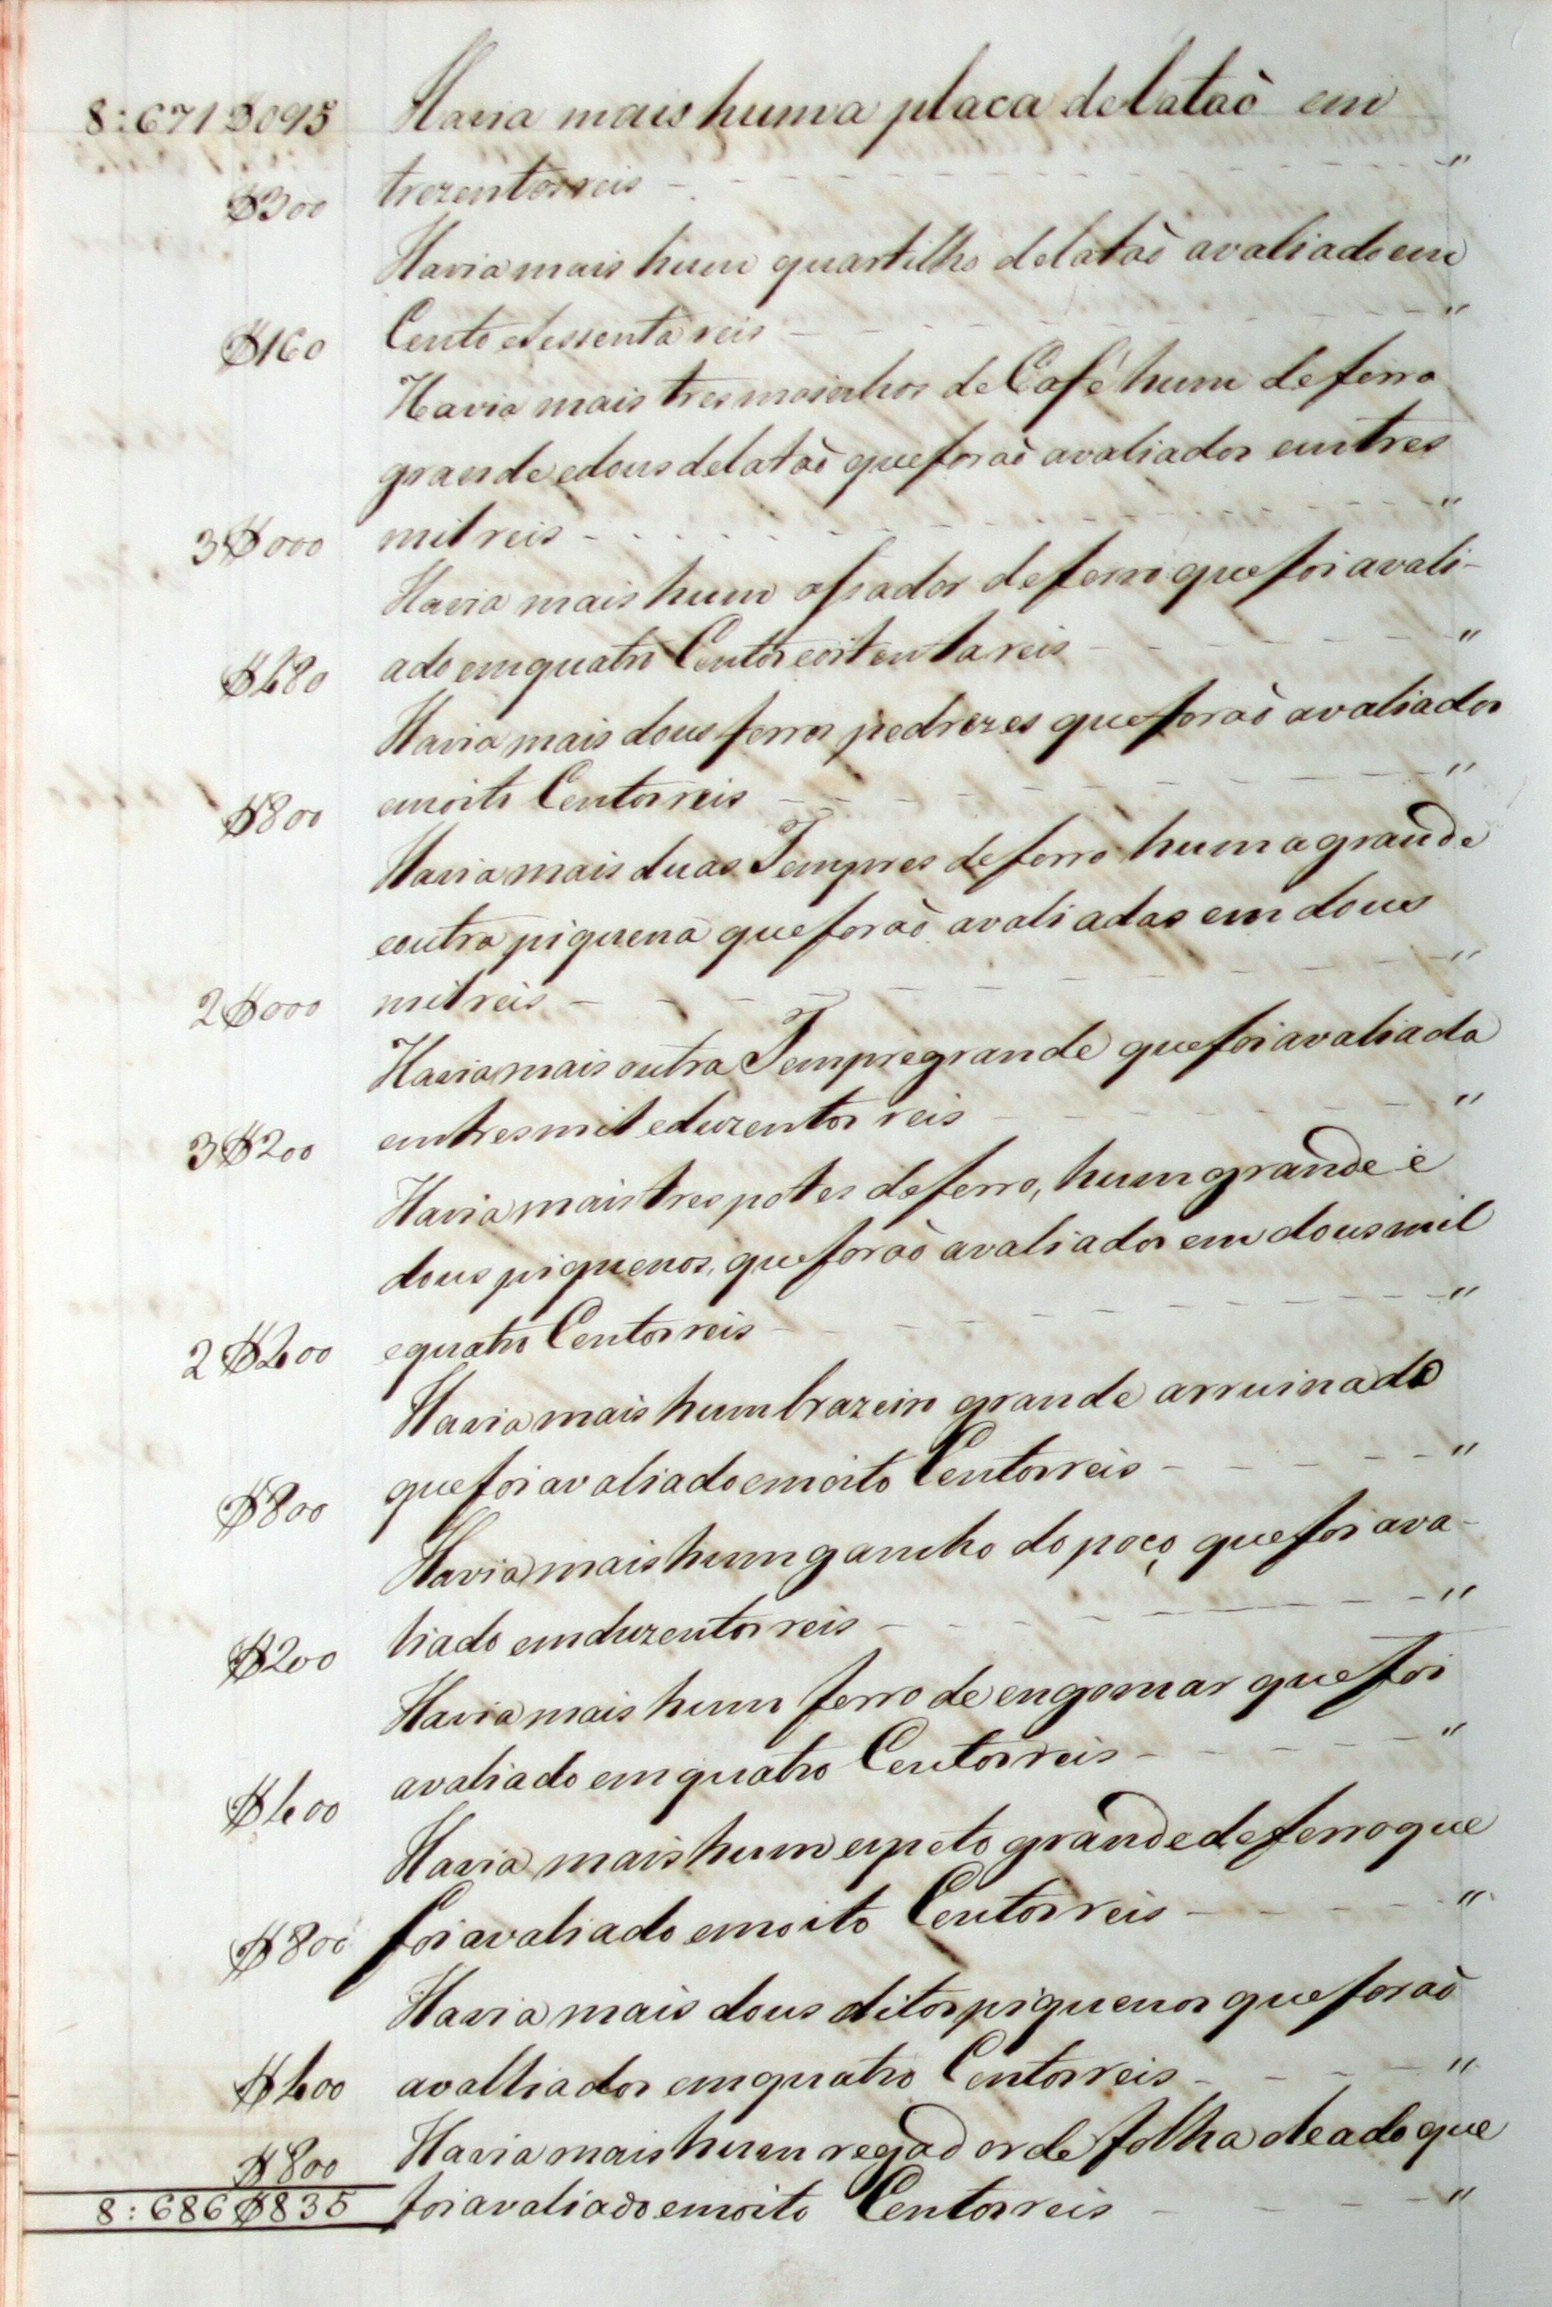 8:671$095 Havia mais huma placa de lataõ em
$300 trezentos reis - - - "
Havia mais hum quartilho de lataõ avaliado em
$160 Cento e sessenta reis - - - "
Havia mais tres moinhos de Café hum de ferro
grande e dous de lataõ que foraõ avaliados em tres
3$000 mil reis - - - "
Havia mais hum assador de ferro que foi avali-
$480 ado em quatro Centos e oitenta reis - - - "
Havia mais dous ferros pedrezes que foraõ avaliados
$800 em oito Centos reis - - - "
Havia mais duas Tempres de ferro huma grande
e outra piquena que foraõ avaliadas em dous
2$000 mil reis - - - "
Havia mais outra Tempre grande que foi avaliada
3$200 em tres mil e duzentos reis - - - "
Havia mais tres potes de ferro, hum grande e
dous piquenos, que foraõ avaliados em dous mil
2$400 e quatro Centos reis - - - "
Havia mais hum brazeiro grande arruinado
$800 que foi avaliado em oito Centos reis - - - "
Havia mais hum gancho do poço que foi ava-
$200 liado em duzentos reis - - - "
Havia mais hum ferro de engomar que foi
$400 avaliado em quatro Centos reis - - - "
Havia mais hum espeto grande de ferro que
$800 foi avaliado em oito Centos reis - - - "
Havia mais dous ditos piquenos que foraõ
$400 avalliados em quatro Centos reis - - - "
$800 Havia mais hum regador de folha de ado que
8:686$835 foi avaliado em oito Centos reis - - - "